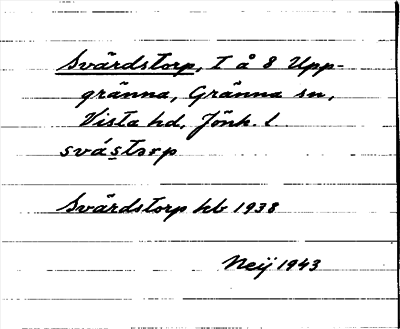 Svärdstorp, T å 8 Upp-
gränna, Gränna sn,
Vista hd, Jönk. l
svástorp
Svärdstorp hb 1938
Neij 1943